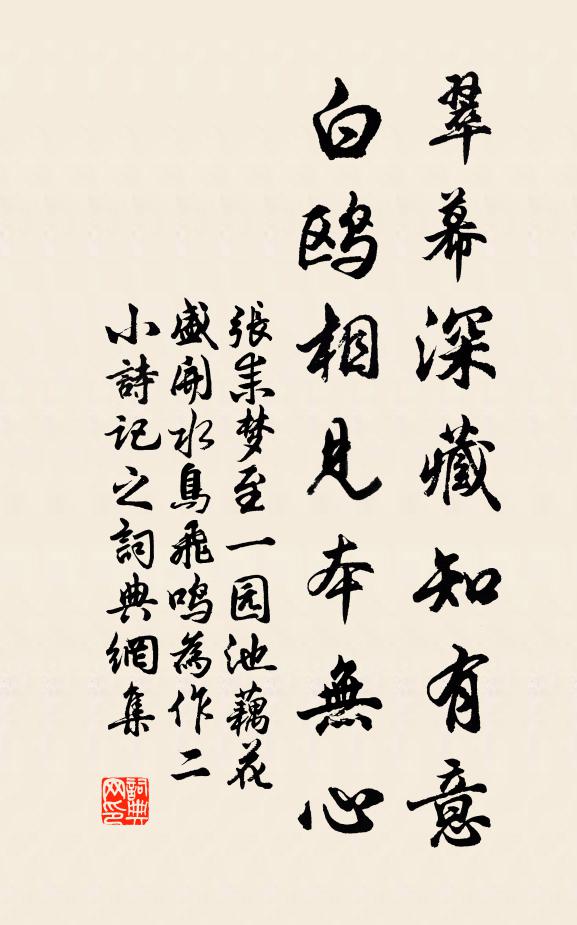 翠幕深藏知有意
白鸥相見本無心
張耒梦至一园池藕花
盛開水鳥飛鸣為作二
小詩記之詞典網集
詞典网印